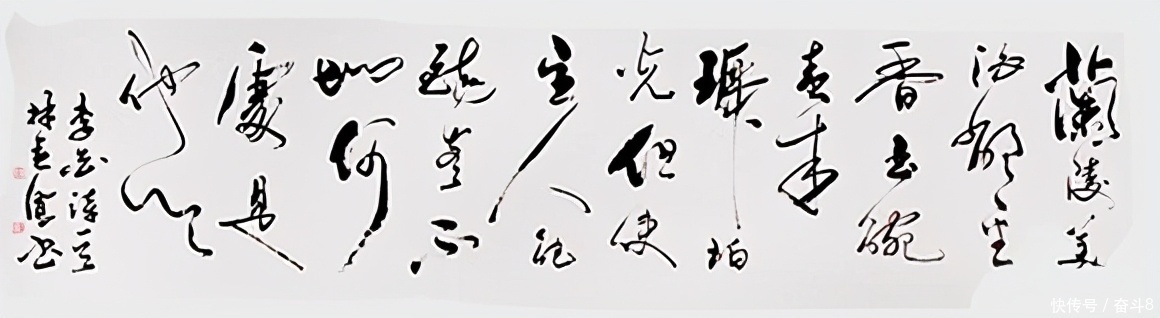 蘭陵美
酒鬱金
香玉碗
盛来
琥珀
光但使
主人能
醉客不
知何
處是
他鄉
李白詩一首
林書
快传号 / 奋斗8